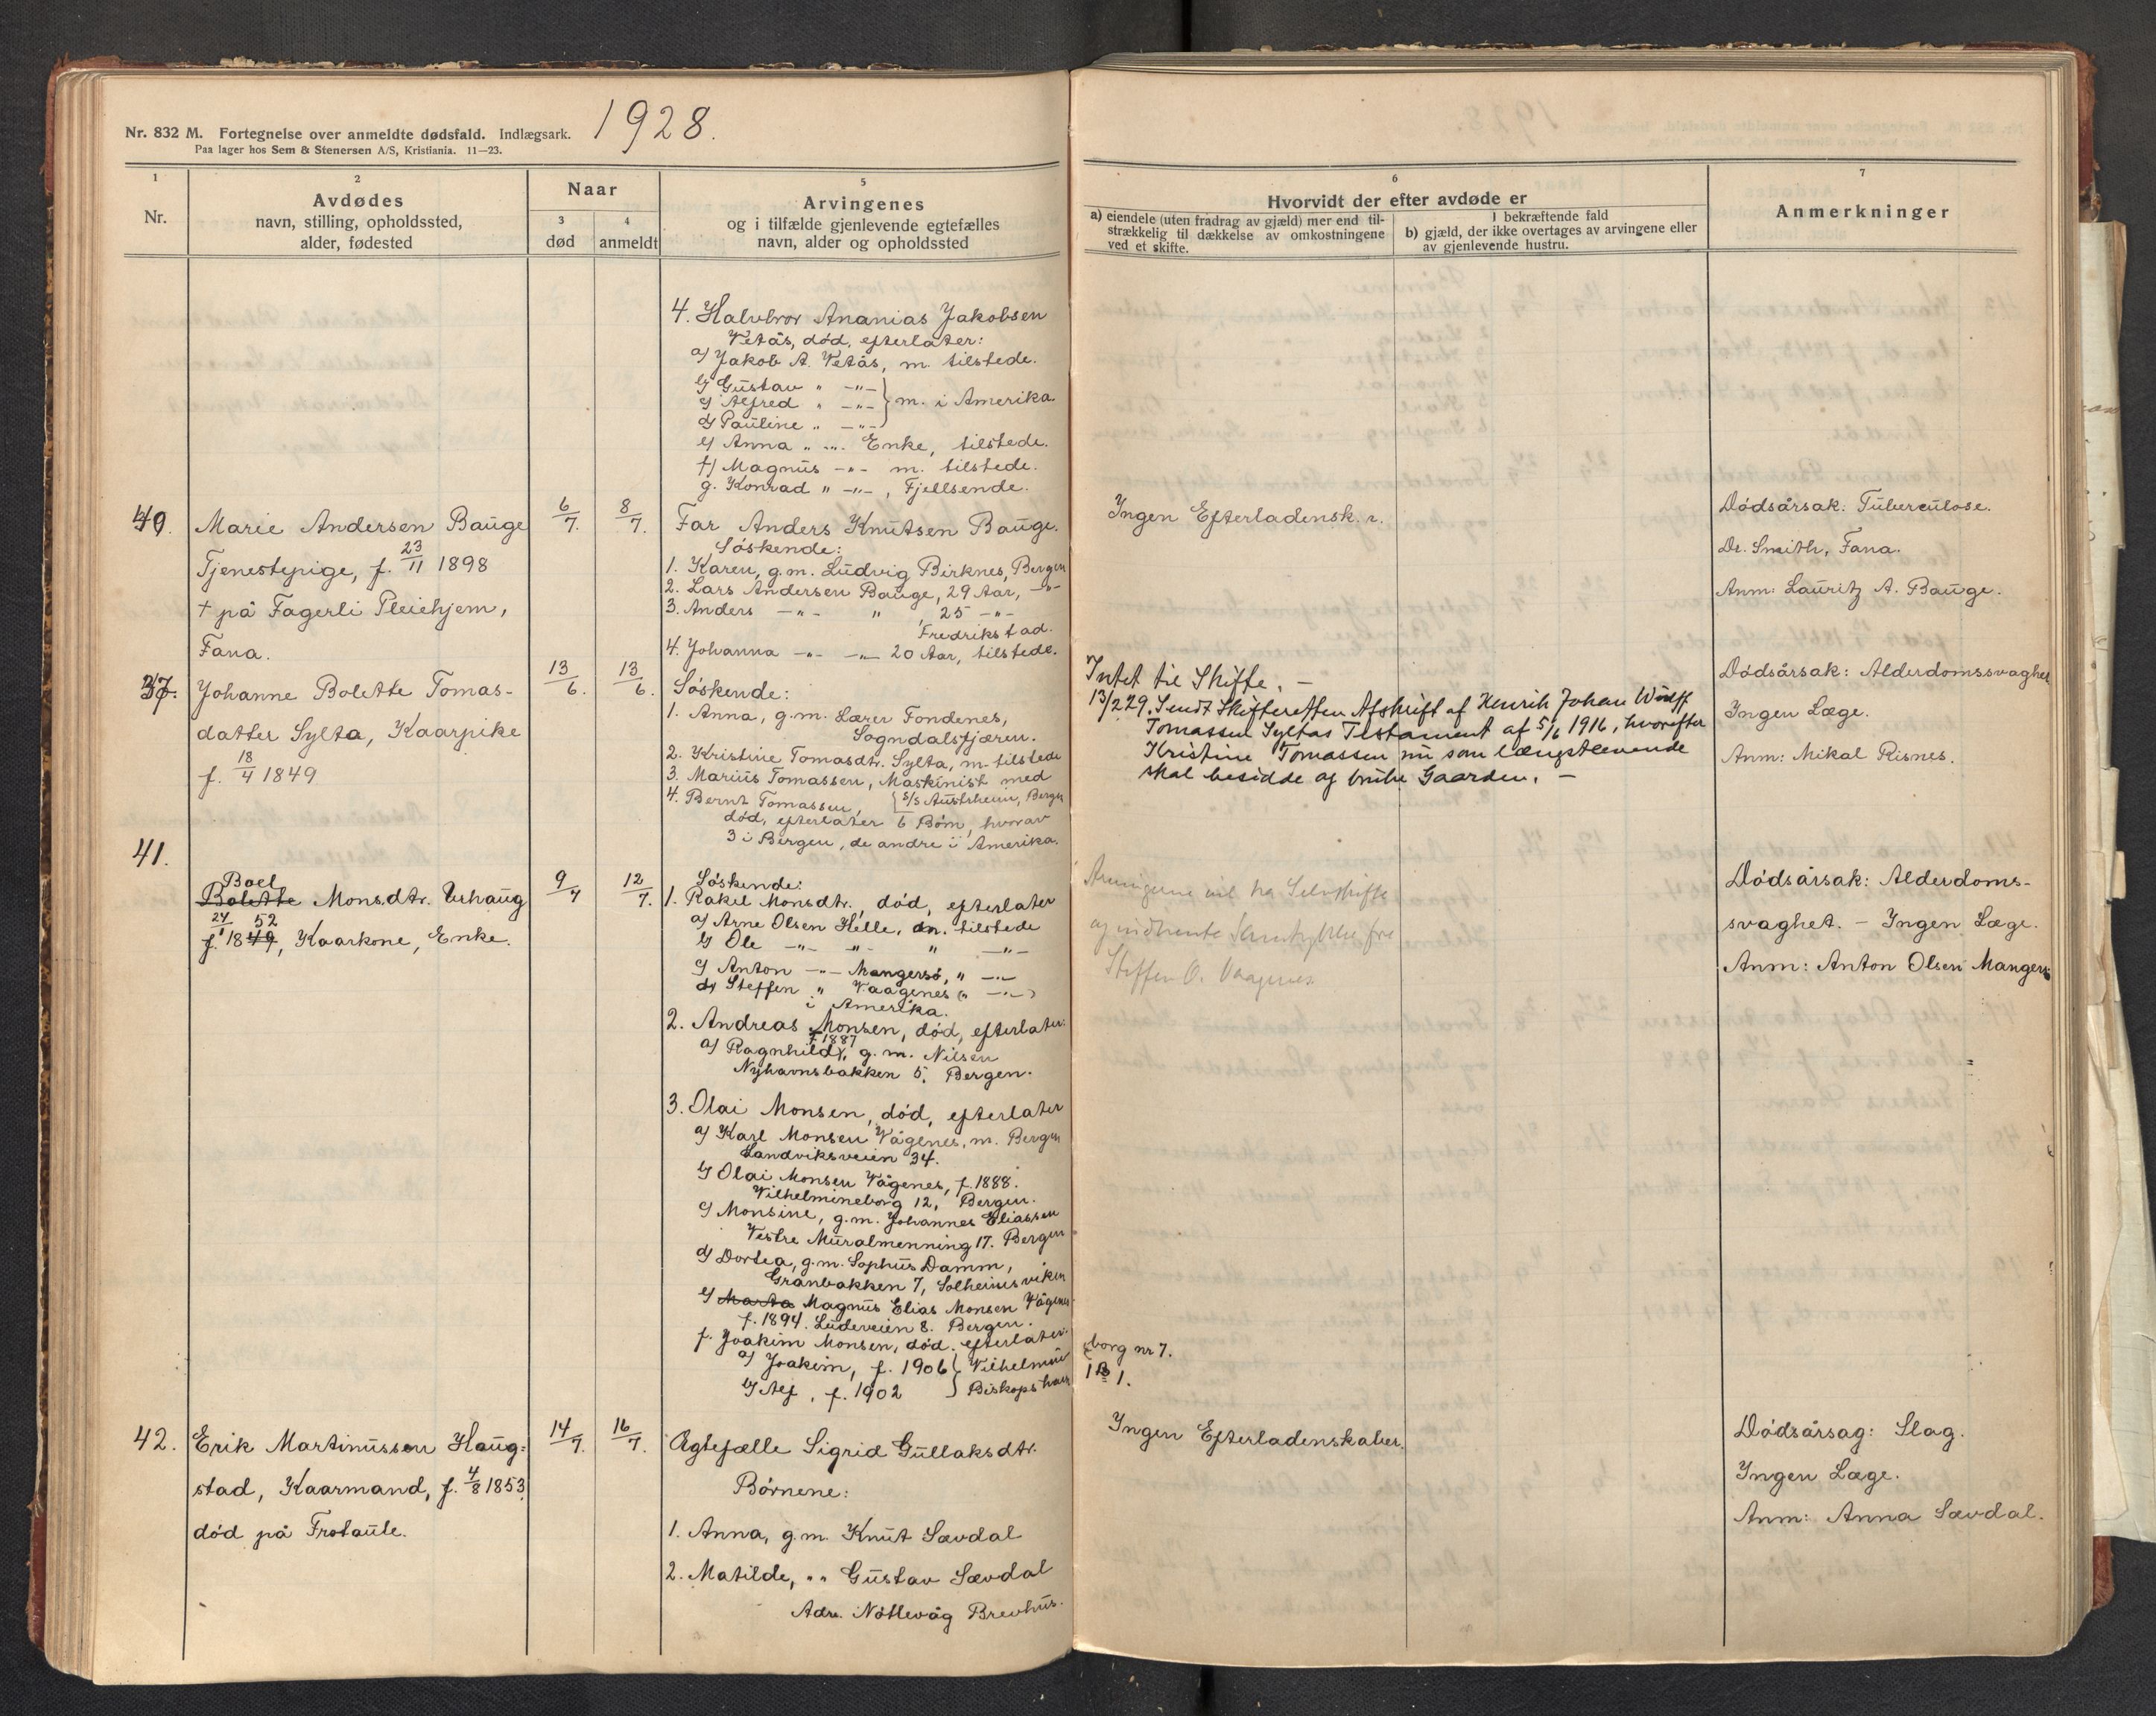 Nr. 832 M. Fortegnelse over anmeldte dødsfald. Indlægsark.
Paa lager hos Sem & Stenersen A/S, Kristiania. 11—23.
1928.
1
Nr.
2
Avdødes
navn, stilling, opholdssted,
alder, fødested
Naar
3
død
4
anmeldt
5
Arvingenes
og i tilfælde gjenlevende egtefælles
navn, alder og opholdssted
6
Hvorvidt der efter avdøde er
a) eiendele (uten fradrag av gjæld) mer end til-
strækkelig til dækkelse av omkostningene
ved et skifte.
I bekræftende fald
b) gjæld, der ikke overtages av arvingene eller
av gjenlevende hustru.
7
Anmerkninger
4. Halvbror Ananias Jakobsen
Vetås, død, efterlater:
a) Jakob A. Vetås, m. tilstede.
b) Gustav " -"-
c) Alfred " -"- } m. i Amerika.
d) Pauline " -"-
e) Anna " -"- Enke, tilstede.
f) Magnus -"- m. tilstede.
g. Konrad " -"-, Fjellsende.
40.
Marie Andersen Bauge
Tjenestepige, f. 23/11 1898
† på Fagerli Pleiehjem,
Fana.
6/7.
8/7.
Far Anders Knutsen Bauge.
Søskende:
1. Karen, g.m. Ludvig Birknes, Bergen
2. Lars Andersen Bauge, 29 Aar, -"-
3. Anders -"- " , 25 -"-
Fredrikstad.
4. Johanna -"- -"- 20 Aar, tilstede.
Ingen Efterladensk. r.
Dødsårsak: Tuberculose.
Dr. Smith, Fana.
Anm: Lauritz A. Bauge.
37.
Johanne Bolette Tomas-
datter Sylta, Kaarpike
f. 18/4 1849
13/6.
13/6.
Søskende:
1. Anna, g.m. Lærer Fondenes,
Sogndalsfjæren.
2. Kristine Tomasdtr. Sylta, m. tilstede
3. Marius Tomassen, Maskinist med
{ S/S Austrheim, Bergen
4. Bernt Tomassen,
død, efterlater 6 Børn, hvorav
3 i Bergen, de andre i Amerika.
Intet til Skifte. —
13/2 29. Sendt Skifteretten Afskrift af Henrik Johan Wulff
Tomassen Syltas Testament af 5/6 1916, hvorefter
Kristine Tomassen nu som længstlevende
skal besidde og bruke Gaarden. —
Dødsårsak: Alderdomssvaghet
Ingen Læge.
Anm: Mikal Risnes.
41.
Boel
Bolette Monsdtr. Urhaug
24/1 52
f. 1849, Kaarkone, Enke.
9/7
12/7.
Søskende:
1. Rakel Monsdtr., død, efterlater
a) Arne Olsen Helle, m. tilstede
b) Ole -"- -"- " -"-
c) Anton -"- Mangersø, " -"-
d) Steffen " Vaagenes (" -"-)
i Amerika.
2. Andreas Monsen, død, efterlater:
f. 1887
a) Ragnhild, g.m. Nilsen
Nyhavnsbakken 5, Bergen.
3. Olai Monsen, død, efterlater
a) Karl Monsen Vågenes, m. Bergen
Sandviksveien 34.
b) Olai Monsen Vågenes, f. 1888.
Vilhelmineborg 12, Bergen.
c) Monsine, g.m. Johannes Eliassen
Vestre Muralmenning 17. Bergen
d) Dortea, g.m. Sophus Damm,
Granbakken 7, Solheimsviken
e) Marta Magnus Elias Monsen Vågenes
f. 1894. Ludeveien 8. Bergen.
f. Joakim Monsen, død, efterlater:
a) Joakim, f. 1906 { Vilhelmine
borg nr 7.
b) Alf, f. 1902 } Biskopshavn
1 B 1.
Arvingerne vil ha Selvskifte
og indhente Samtykke fra
Steffen O. Vaagenes
Dødsårsak: Alderdoms-
svaghet. — Ingen Læge.
Anm: Anton Olsen Mangersø
42.
Erik Martinussen Haug-
stad, Kaarmand, f. 4/8 1853
død på Frotaule.
14/7.
16/7.
Ægtefælle Sigrid Gullaksdtr.
Børnene:
1. Anna, g.m. Knut Sævdal
2. Matilde, " " Gustav Sævdal
Adr. Nøttevåg Brevhus.
Ingen Efterladenskaber.
Dødsårsag: Slag.
Ingen Læge.
Anm: Anna Sævdal.